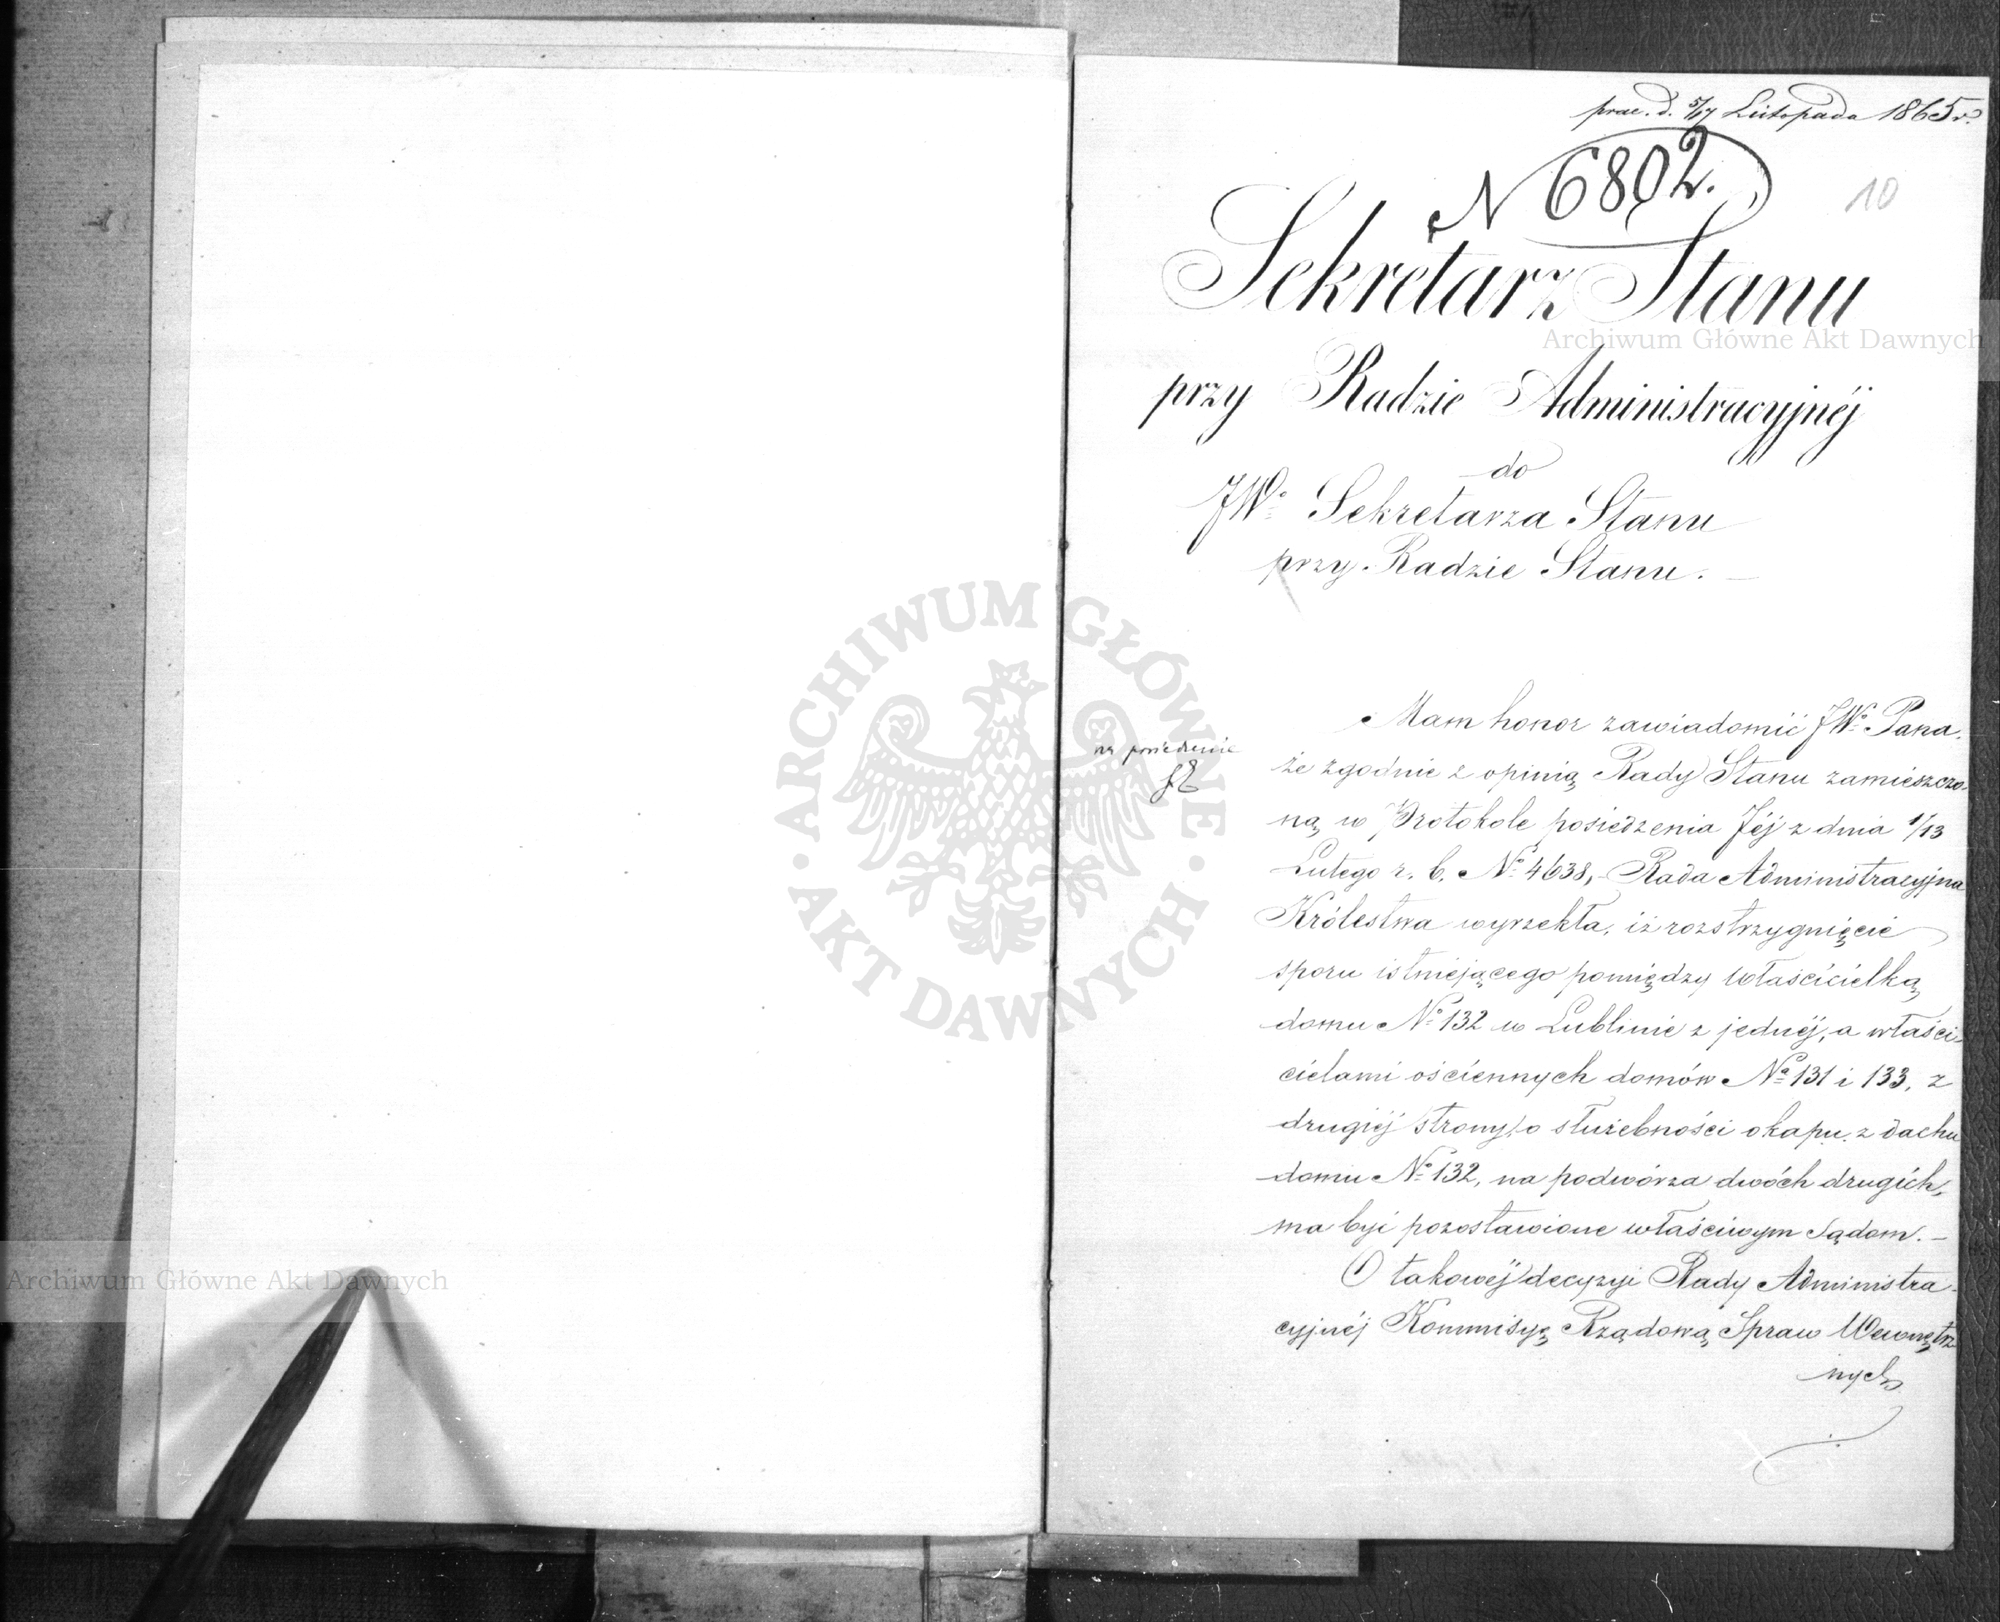 prae. d. 5/17 Listopada 1865 r.
N 6802.
10
Sekretarz Stanu
przy Radzie Administracyjnéj
do
JWo Sekretarza Stanu
przy Radzie Stanu. —
na posiedzenie
Mam honor zawiadomić JWo Pana,
że zgodnie z opinią Rady Stanu zamieszczo-
ną w Protokole posiedzenia Jéj z dnia 1/13
Lutego r. b. No 4638, Rada Administracyjna
Królestwa wyrzekła, iż rozstrzygnięcie
sporu istniejącego pomiędzy właścicielką
domu No 132 w Lublinie z jednéj, a właści-
cielami ościennych domów No 131 i 133, z
drugiéj strony, o służebności okapu z dachu
domu No 132, na podwórza dwóch drugich,
ma być pozostawione właściwym Sądom. —
O takowéj decyzyi Rady Administra-
cyjnéj Kommisyę Rządową Spraw Wewnętrz-
nych
Archiwum Główne Akt Dawnych
Archiwum Główne Akt Dawnych
ARCHIWUM GŁÓWNE · AKT DAWNYCH ·